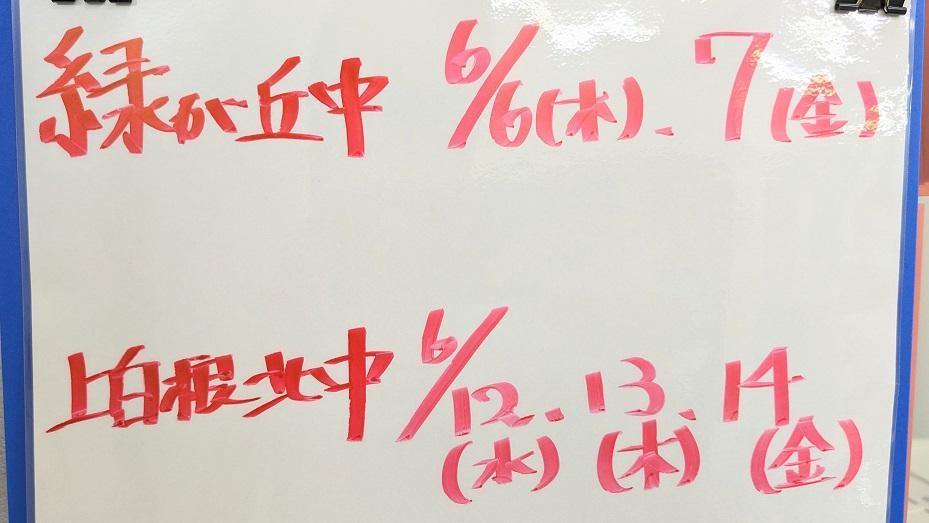 緑が丘中 6/6(木)、7(金)
上白根北中 6/12、13、14
(水) (木) (金)